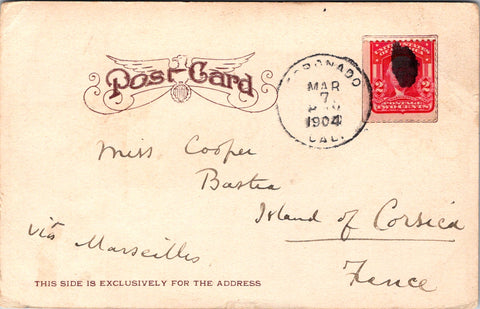 Post Card
CORONADO
MAR
7
1904
CAL.
UNITED STATES OF AMERICA
2 2
POSTAGE
TWO CENTS
Miss Cooper
Bastia
Island of Corsica
via Marseilles
France
THIS SIDE IS EXCLUSIVELY FOR THE ADDRESS